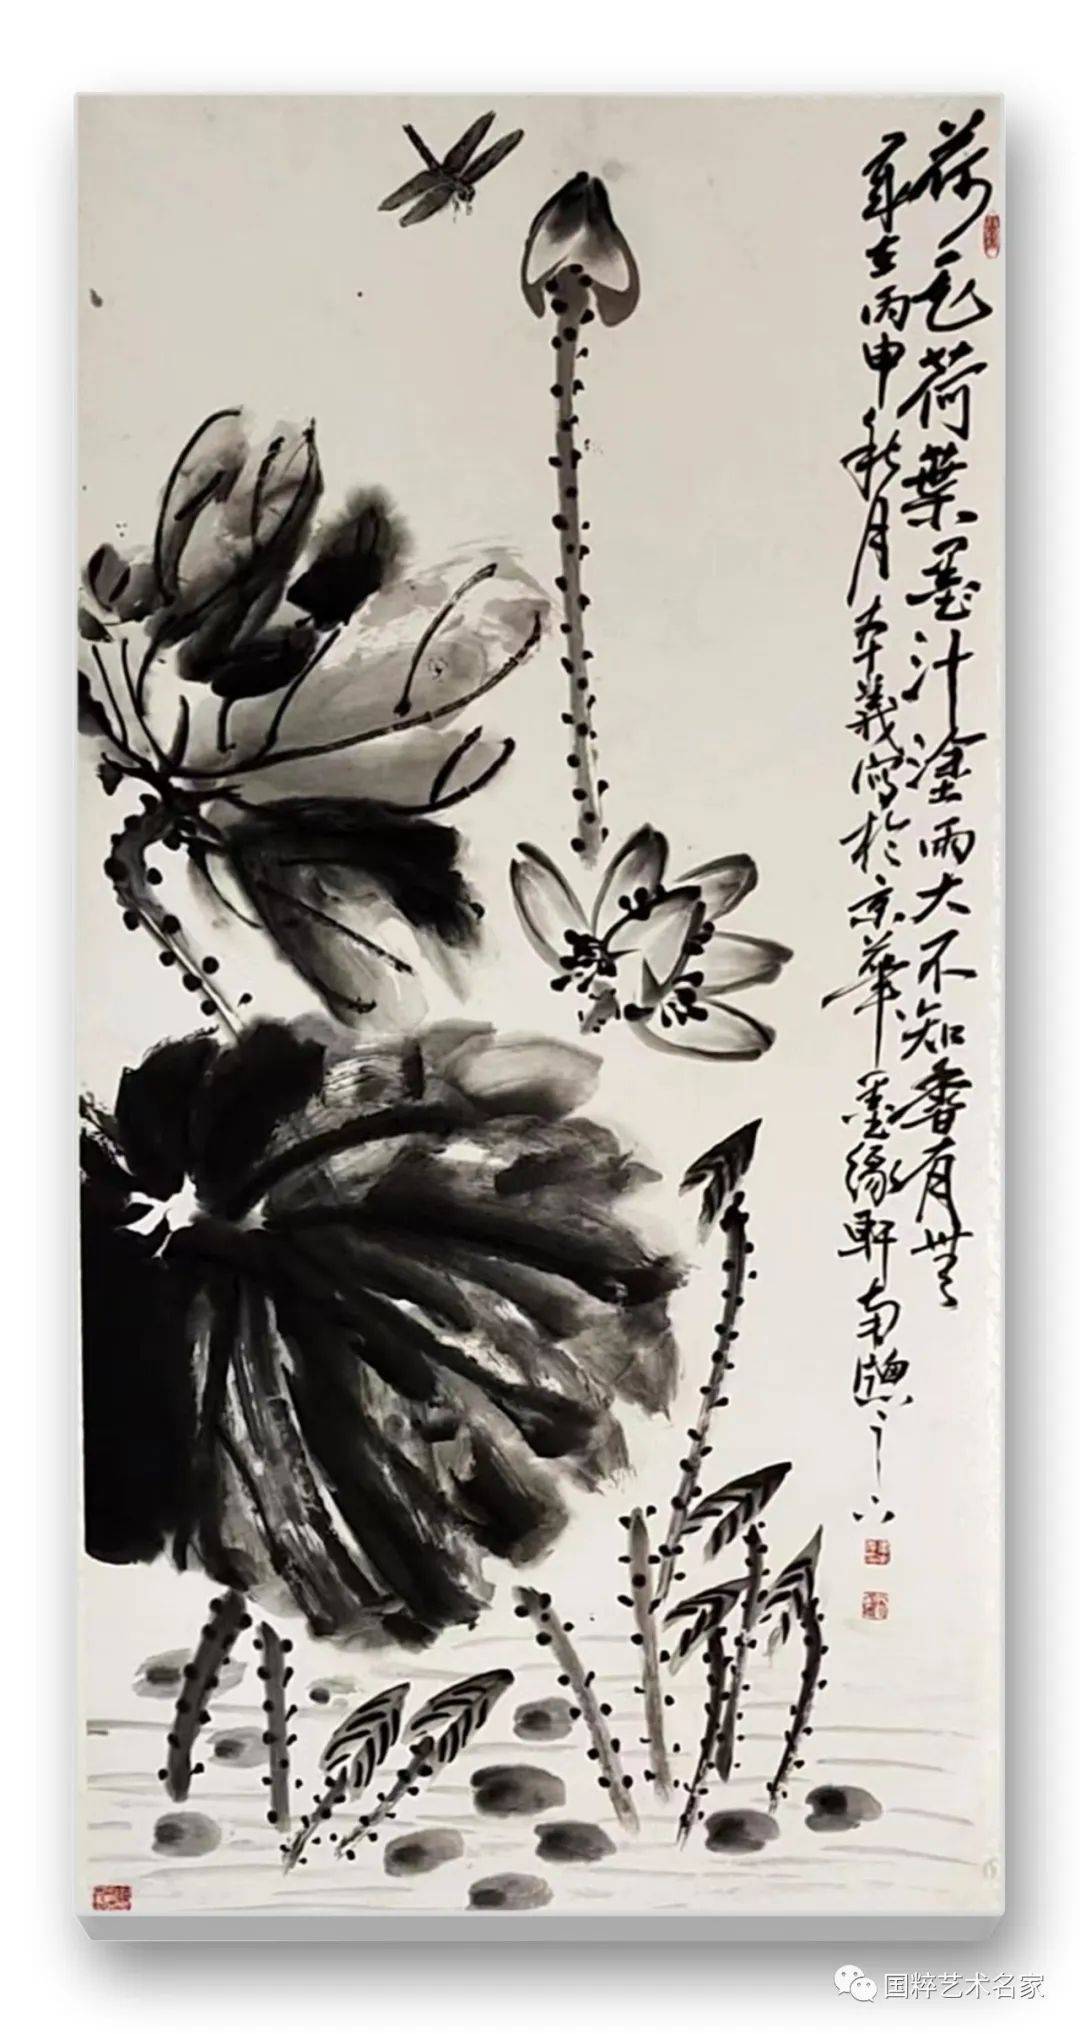 荷花荷葉墨汁塗雨大不知香有無
歲在丙申秋月本義寫於京華墨緣軒南牕之下
国粹艺术名家